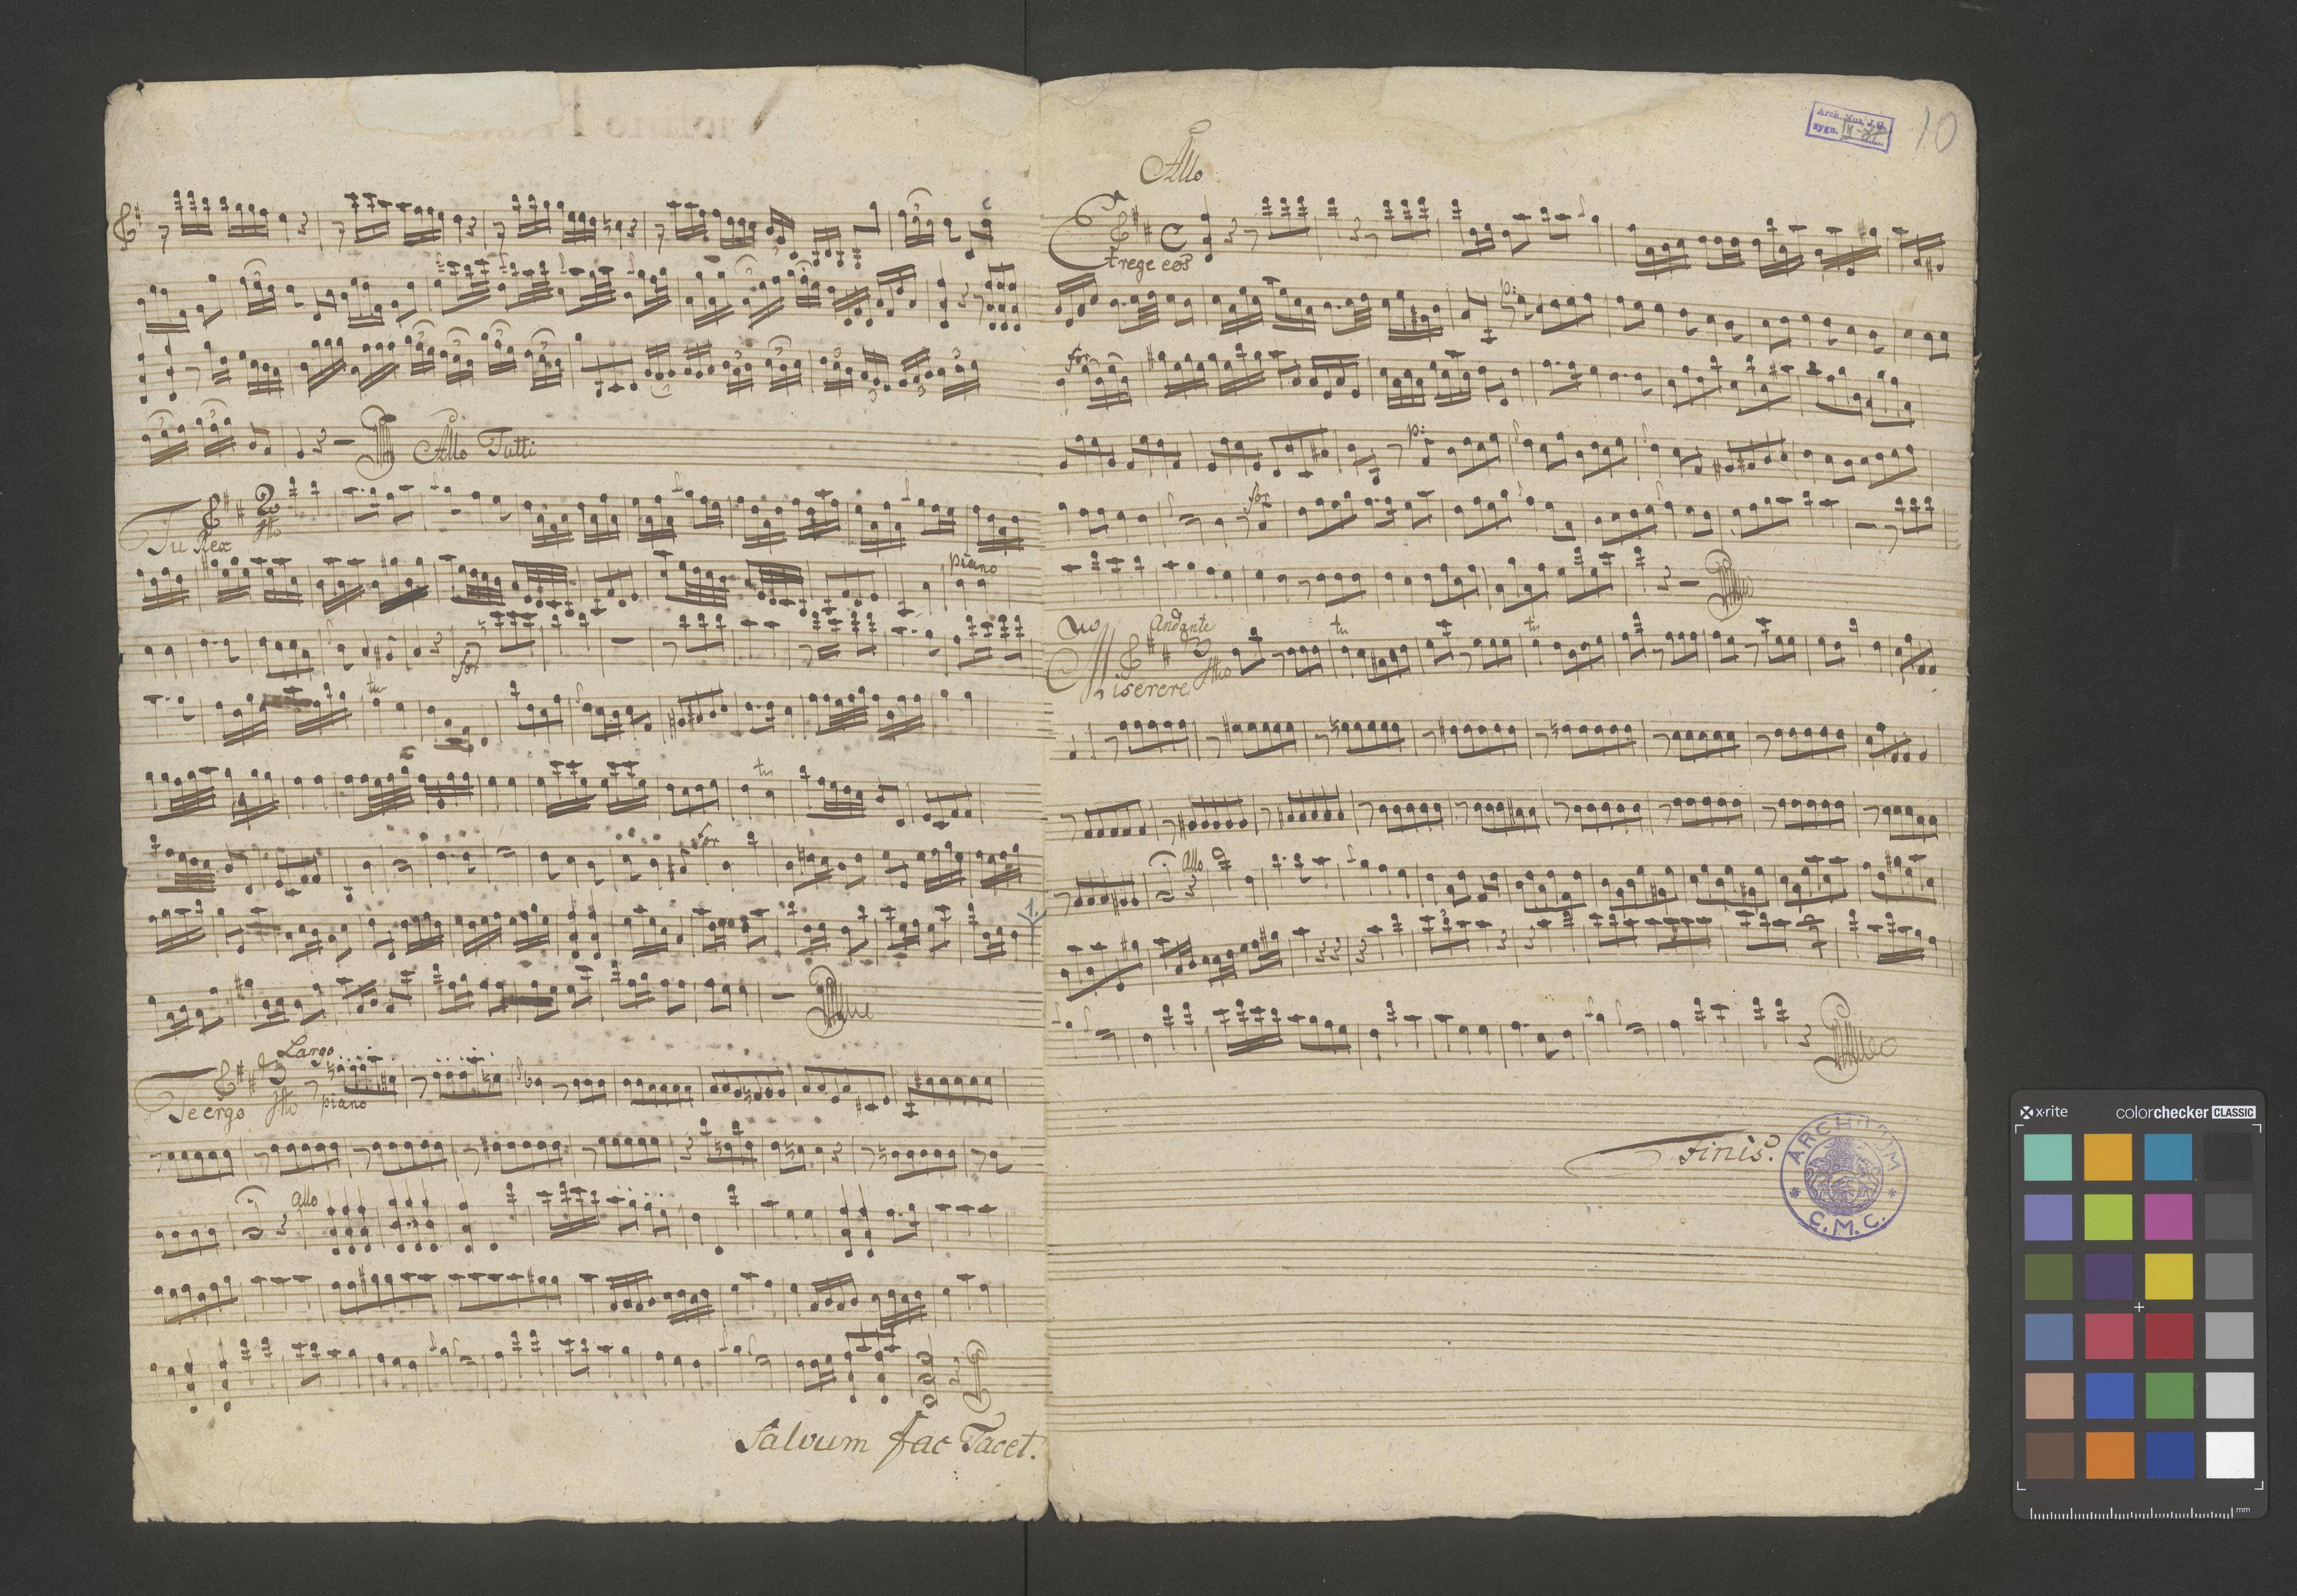 Allo Tutti
Tu Rex
2
piano
for
tr
tr
for
Largo
Te ergo
3
piano
allo
Salvum fac Tacet.
Arch. Mus. J. G.
sygn.
10
Allo
C
Et rege eos
p:
for
p:
for
Andante
tr
tr
Miserere
3
allo
Finis.
ARCHIVUM
C.M.C.
x-rite
colorchecker CLASSIC
mm